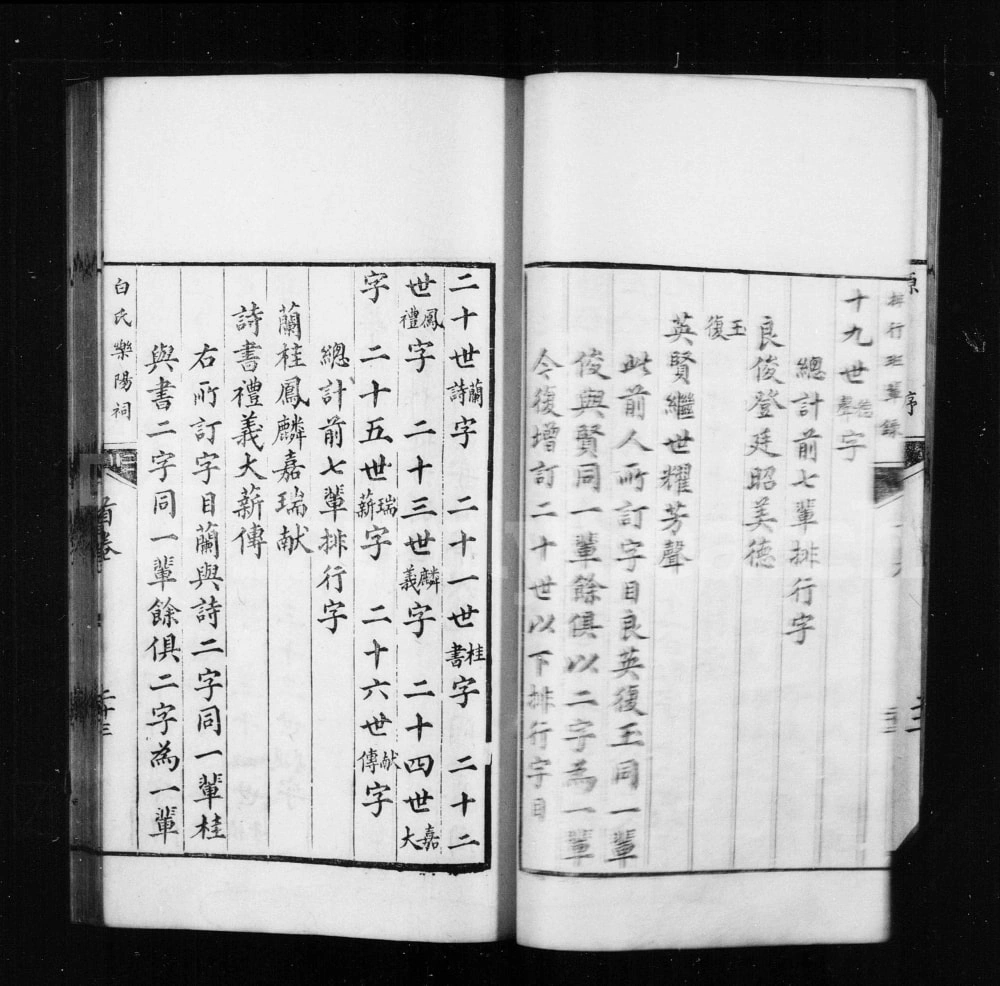 排行班輩錄
十九世德聲字
總計前七輩排行字
良俊登廷昭美德
玉復
英賢繼世耀芳聲
此前人所訂字目良英復玉同一輩
俊與賢同一輩餘俱以二字為一輩
今復增訂二十世以下排行字目
二十世蘭詩字 二十一世桂書字 二十二
世鳳禮字 二十三世麟義字 二十四世嘉大
字 二十五世瑞薪字 二十六世献傳字
總計前七輩排行字
蘭桂鳳麟嘉瑞献
詩書禮義大薪傳
右所訂字目蘭與詩二字同一輩桂
與書二字同一輩餘俱二字為一輩
白氏樂陽祠
首卷
二十三